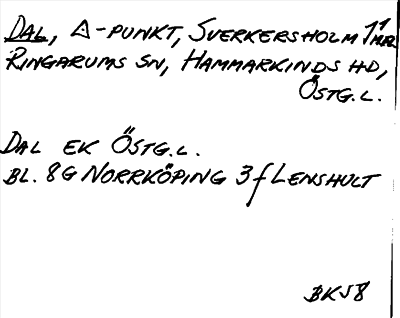 DAL, Δ-PUNKT, SVERKERSHOLM 1¹ MR
RINGARUMS SN, HAMMARKINDS HD,
ÖSTG.L.
DAL EK ÖSTG.L.
BL. 8G NORRKÖPING 3f LENSHULT
BKS8